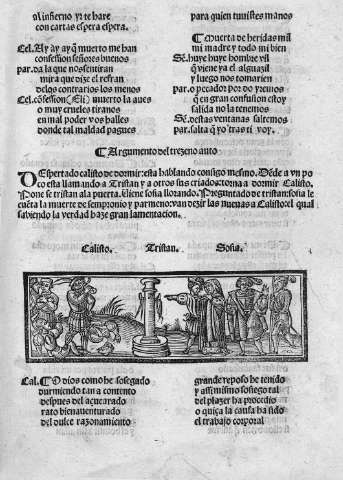 al infierno yr te hare
con cartas espera espera.
Cel. Ay ay ay q̃ muerto me han
confession señores buenos
par. da la que nos sentiran
mira que dize el refran
delos contrarios los menos
Cel. cõfession muerto la aues
o muy crueles tiranos
en mal poder vos halles
donde tal maldad pagues
para quien tuuistes manos
¶ Muerta de heridas mil
mi madre y todo mi bien
Sẽ. huye huye hombre vil
q̃ viene ya el alguazil
y luego nos tomarien
par. o pecador por do yremos
que en gran confusion estoy
salida no la tenemos
Sẽ. destas ventanas saltemos
par. salta q̃ yo tras ti voy.
¶ Argumento del trezeno auto
Despertado calisto de dormir: esta hablando consigo mesmo. Dẽde a vn po
co esta llamando a Tristan y a otros sus criados: torna a dormir Calisto.
Pone se tristan ala puerta. viene sosia llorando. Preguntado de tristan: sosia le
cuẽta la muerte de sempronio y parmeno: van dezir las nueuas a Calisto: el qual
sabiendo la verdad haze gran lamentacion.
Calisto. Tristan. Sosia.
Cal. ¶ O dios como he sosegado
durmiendo tan a contento
despues del açucarado
rato bienauenturado
del dulce razonamiento
grande reposo he tenido
y assi mismo sosiego tal
del plazer ha procedio
o quiça la causa ha sido
el trabajo corporal